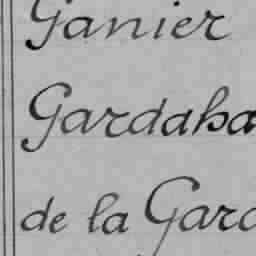 Ganier
Gardaha
de la Gard